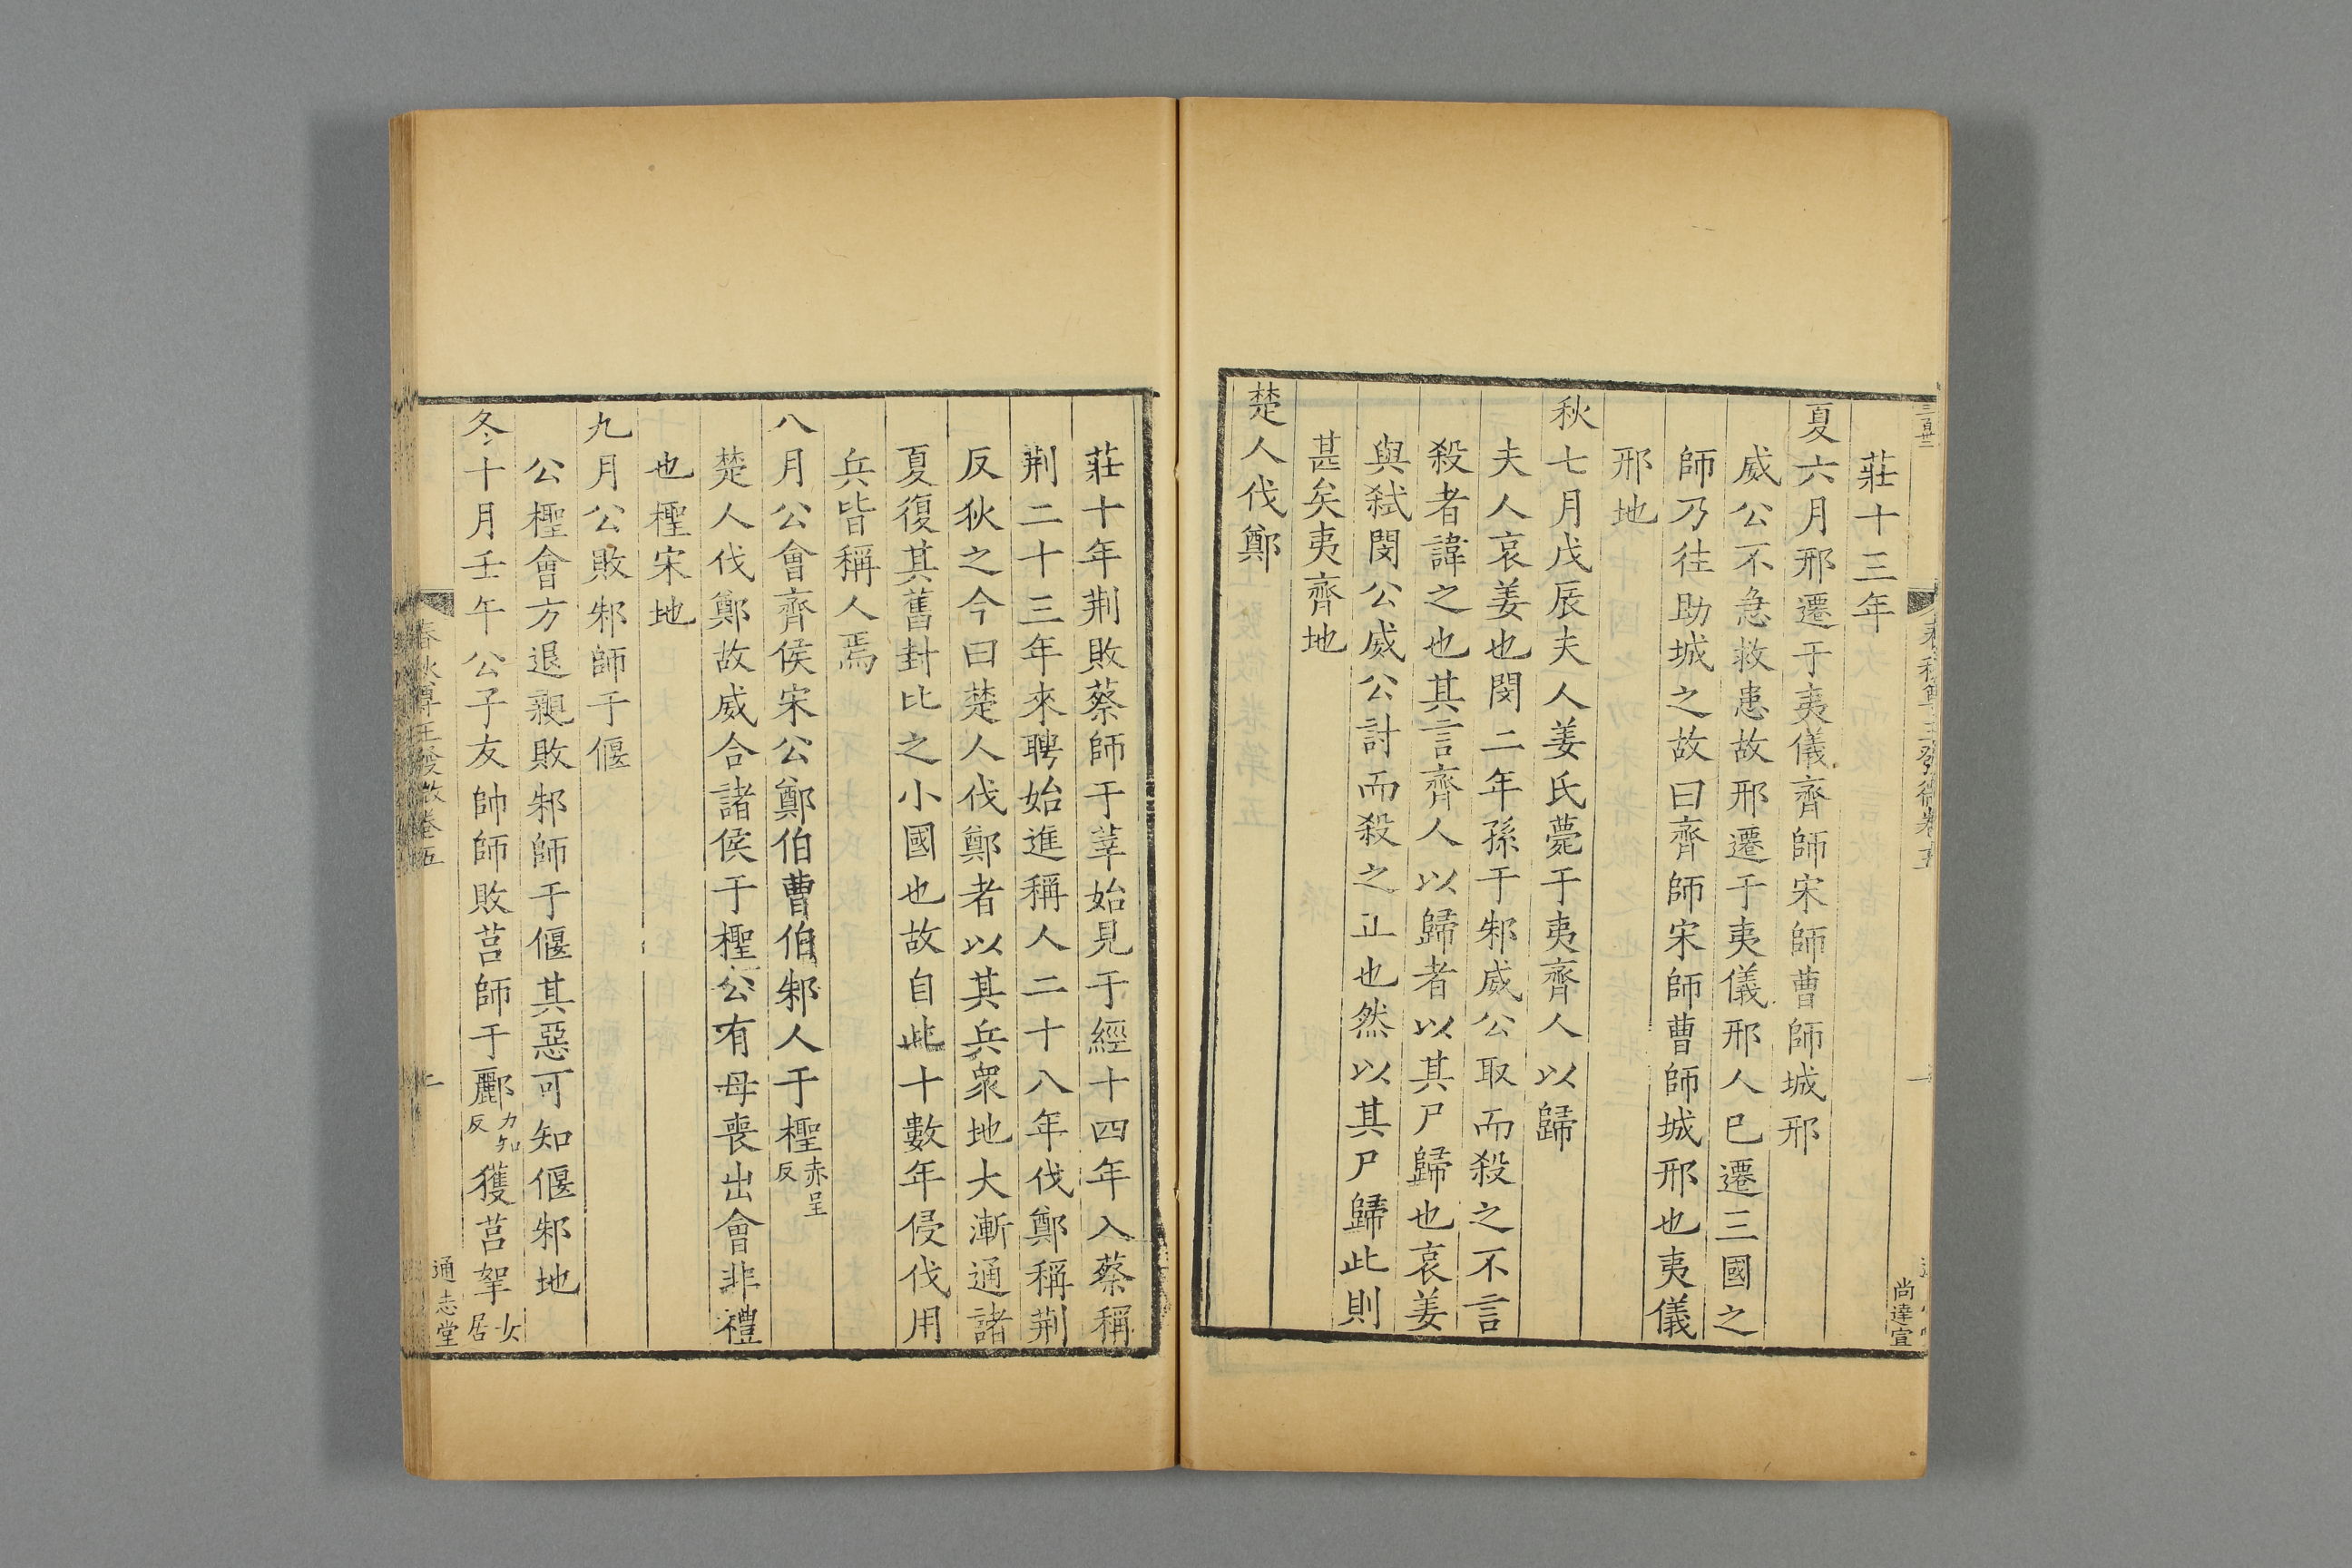 莊十三年
夏六月邢遷于夷儀齊師宋師曹師城邢
威公不急救患故邢遷于夷儀邢人巳遷三國之
師乃往助城之故曰齊師宋師曹師城邢也夷儀
邢地
秋七月戊辰夫人姜氏薨于夷齊人以歸
夫人哀姜也閔二年孫于邾威公取而殺之不言
殺者諱之也其言齊人以歸者以其尸歸也哀姜
與弑閔公威公討而殺之正也然以其尸歸此則
甚矣夷齊地
楚人伐鄭
尚達宣
莊十年荆敗蔡師于莘始見于經十四年入蔡稱
荆二十三年來聘始進稱人二十八年伐鄭稱荆
反狄之今曰楚人伐鄭者以其兵衆地大漸通諸
夏復其舊封比之小國也故自此十數年侵伐用
兵皆稱人焉
八月公會齊侯宋公鄭伯曹伯邾人于檉赤呈反
楚人伐鄭故威合諸侯于檉公有母喪出會非禮
也檉宋地
九月公敗邾師于偃
公檉會方退親敗邾師于偃其惡可知偃邾地
冬十月壬午公子友帥師敗莒師于酈力知反獲莒挐女居
春秋尊王發微卷五
二
通志堂